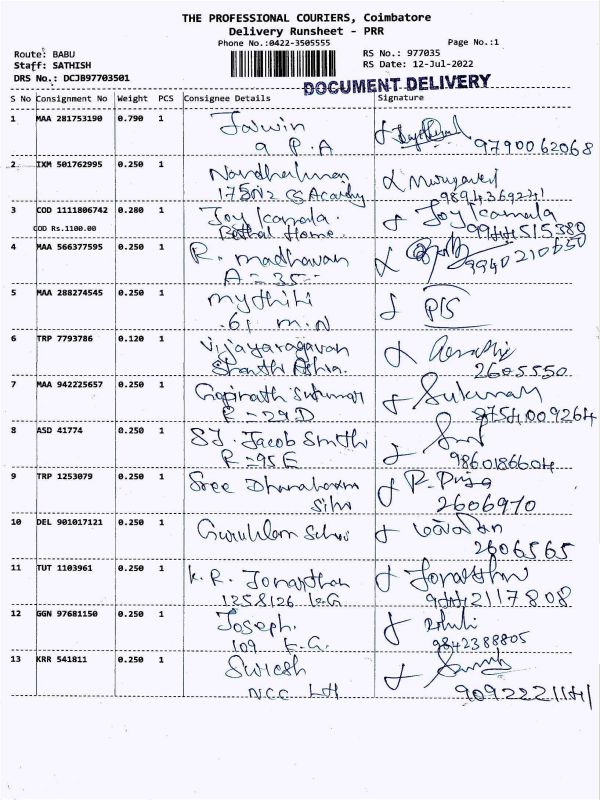 THE PROFESSIONAL COURIERS, Coimbatore
Delivery Runsheet - PRR
Phone No.:0422-3505555
Page No.:1
Route: BABU
RS No.: 977035
Staff: SATHISH
RS Date: 12-Jul-2022
DRS No.: DCJB97703501
DOCUMENT DELIVERY
S No Consignment No Weight PCS Consignee Details Signature
1 MAA 281753190 0.790 1
9 P.A 9790062068
2 IXM 501762995 0.250 1
3 COD 1111806742 0.280 1 Joy Kamala. Joy Kamala
COD Rs.1100.00 Bethal Home. 9944515380
4 MAA 566377595 0.250 1 R. madhavan
9940210650
5 MAA 288274545 0.250 1 mythili
61 M.N
6 TRP 7793786 0.120 1 Vijayaragavan
2605550
7 MAA 942225657 0.250 1 Gopinath Sukumar Sukumar
R-29D 9754009264
8 ASD 41774 0.250 1 S.J. Jacob Smith
R-95E 9860186604
9 TRP 1253079 0.250 1 Sree
2606970
10 DEL 901017121 0.250 1
2606565
11 TUT 1103961 0.250 1 K. R. Jonathan Jonathan
9442117808
12 GGN 97681150 0.250 1 Joseph.
109 K.G. 9842388805
13 KRR 541811 0.250 1 Suresh
NCC